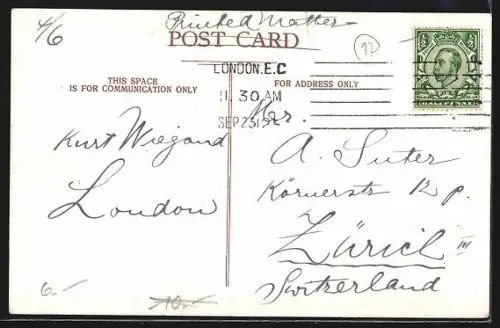 4/6
Printed Matter
POST CARD
17
THIS SPACE
IS FOR COMMUNICATION ONLY
LONDON.E.C
11.30 AM
SEP 23 12
FOR ADDRESS ONLY
Kurt Wiegand
London
6.-
10.-
Mr.
A. Suter
Körnerstr 12 p.
Zürich III
Switzerland